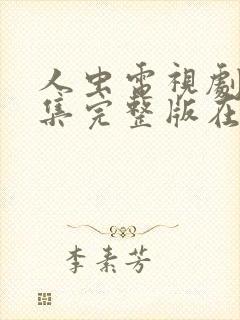 人虫电視劇
集完整版在
李素芳